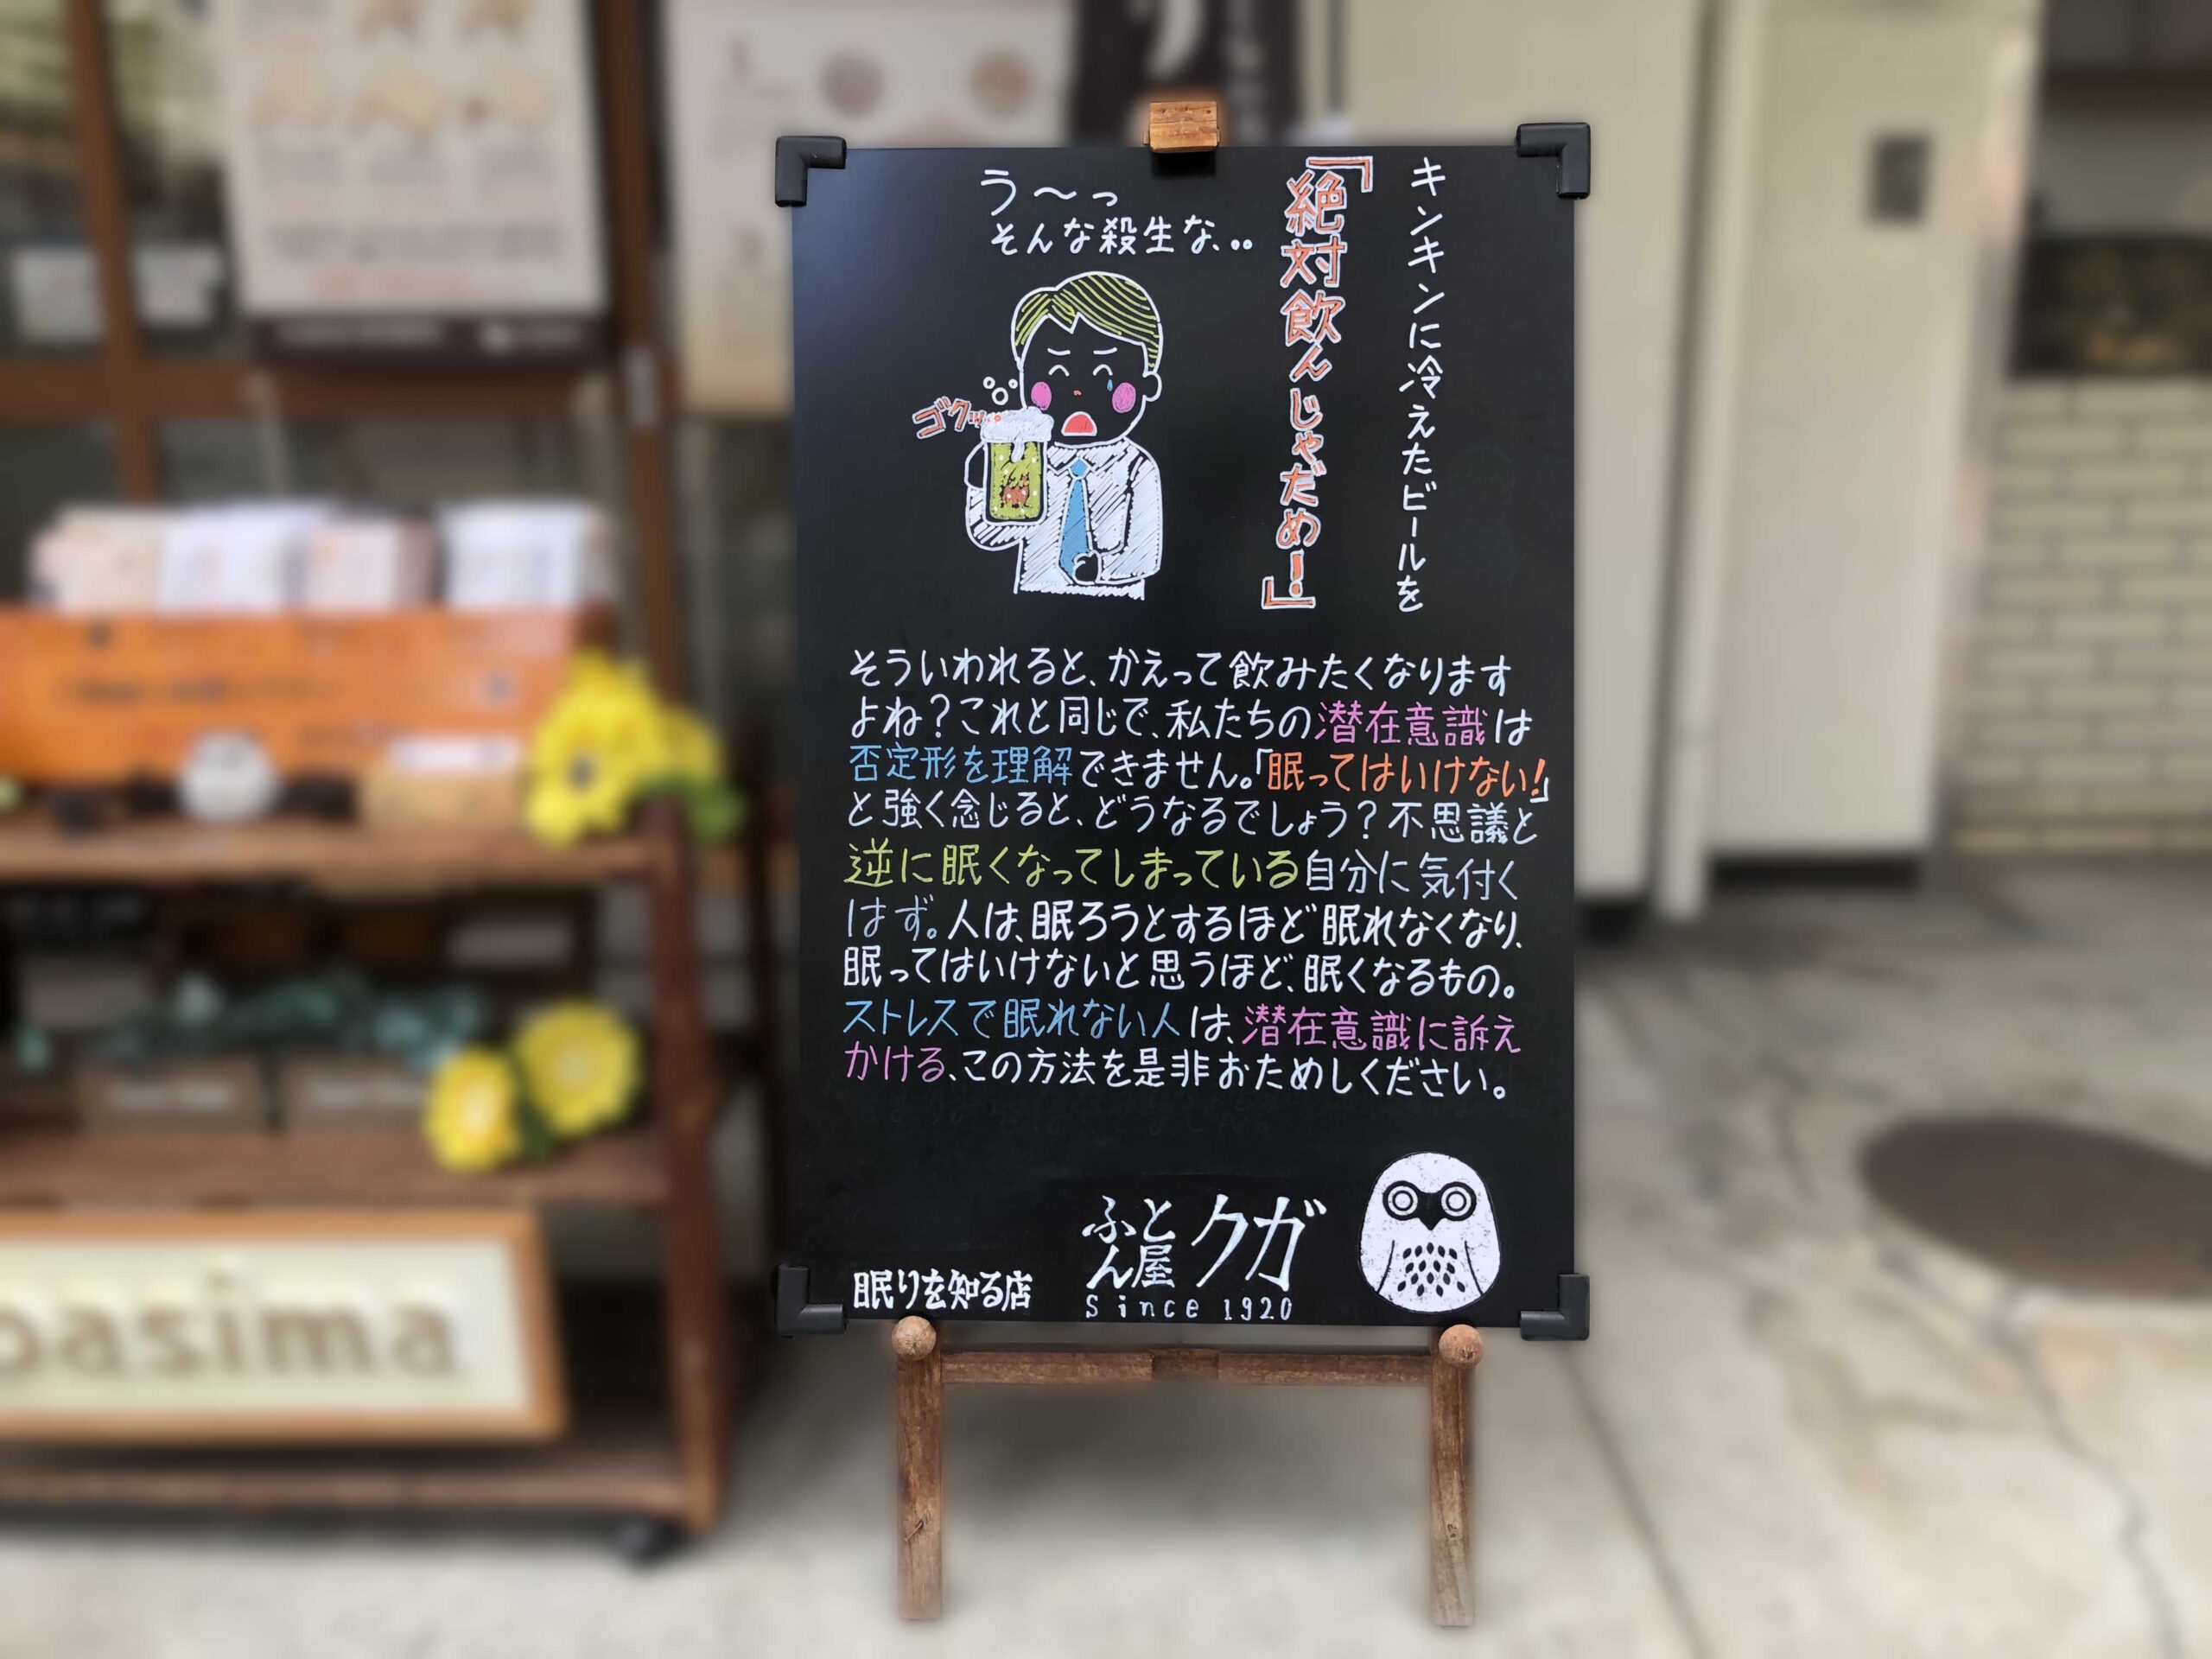 キンキンに冷えたビールを
『絶対飲んじゃだめ!』
う〜っ
そんな殺生な...
ゴクッ...
そういわれると、かえって飲みたくなります
よね?これと同じで、私たちの潜在意識は
否定形を理解できません。「眠ってはいけない!」
と強く念じると、どうなるでしょう?不思議と
逆に眠くなってしまっている自分に気付く
はず。人は、眠ろうとするほど眠れなくなり、
眠ってはいけないと思うほど、眠くなるもの。
ストレスで眠れない人は、潜在意識に訴え
かける、この方法を是非おためしください。
眠りを知る店
ふとん屋クガ
Since 1920
oasima